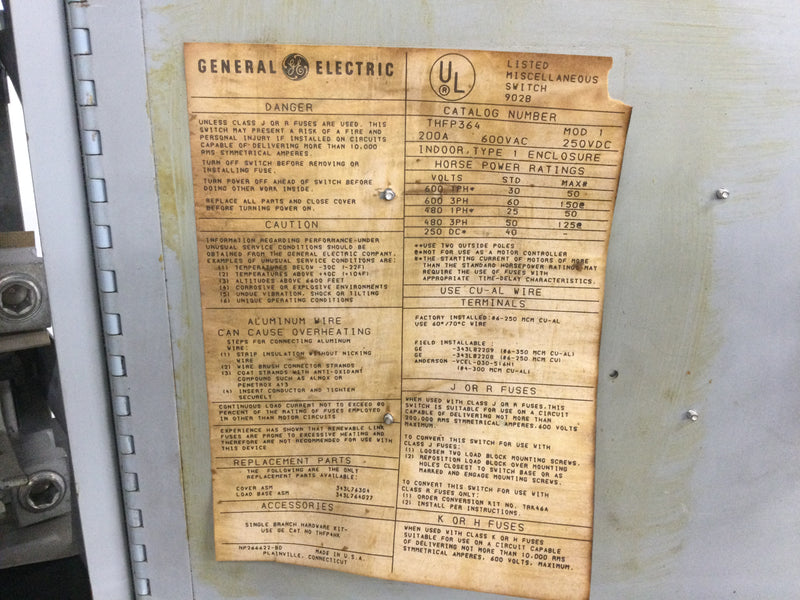 GENERAL GE ELECTRIC
DANGER
UNLESS CLASS J OR R FUSES ARE USED, THIS
SWITCH MAY PRESENT A RISK OF A FIRE AND
PERSONAL INJURY IF INSTALLED ON CIRCUITS
CAPABLE OF DELIVERING MORE THAN 10,000
RMS SYMMETRICAL AMPERES.
TURN OFF SWITCH BEFORE REMOVING OR
INSTALLING FUSE.
TURN POWER OFF AHEAD OF SWITCH BEFORE
DOING OTHER WORK INSIDE.
REPLACE ALL PARTS AND CLOSE COVER
BEFORE TURNING POWER ON.
CAUTION
INFORMATION REGARDING PERFORMANCE-UNDER
UNUSUAL SERVICE CONDITIONS SHOULD BE
OBTAINED FROM THE GENERAL ELECTRIC COMPANY.
EXAMPLES OF UNUSUAL SERVICE CONDITIONS ARE:
(1) TEMPERATURES BELOW -30C (-22F)
(2) TEMPERATURES ABOVE +40C (+104F)
(3) ALTITUDES ABOVE 6600 FEET
(4) CORROSIVE OR EXPLOSIVE ENVIRONMENTS
(5) UNDUE VIBRATION, SHOCK OR TILTING
(6) UNIQUE OPERATING CONDITIONS
ALUMINUM WIRE
CAN CAUSE OVERHEATING
STEPS FOR CONNECTING ALUMINUM
WIRE:
(1) STRIP INSULATION WITHOUT NICKING
WIRE
(2) WIRE BRUSH CONNECTOR STRANDS
(3) COAT STRANDS WITH ANTI-OXIDANT
COMPOUND SUCH AS ALNOX OR
PENETROX A13
(4) INSERT CONDUCTOR AND TIGHTEN
SECURELY
CONTINUOUS LOAD CURRENT NOT TO EXCEED 80
PERCENT OF THE RATING OF FUSES EMPLOYED
IN OTHER THAN MOTOR CIRCUITS
EXPERIENCE HAS SHOWN THAT RENEWABLE LINK
FUSES ARE PRONE TO EXCESSIVE HEATING AND
THEREFORE ARE NOT RECOMMENDED FOR USE WITH
THIS DEVICE
REPLACEMENT PARTS
THE FOLLOWING ARE THE ONLY
REPLACEMENT PARTS AVAILABLE:
COVER ASM 343L763G4
LOAD BASE ASM 343L764G27
ACCESSORIES
SINGLE BRANCH HARDWARE KIT-
USE GE CAT NO THFP4HK
NP264422-BD
MADE IN U.S.A.
PLAINVILLE, CONNECTICUT
UL ®
LISTED
MISCELLANEOUS
SWITCH
902B
CATALOG NUMBER
THFP364 MOD 1
200A 600VAC 250VDC
INDOOR, TYPE 1 ENCLOSURE
HORSE POWER RATINGS
VOLTS STD MAX#
600 1PH* 30 50
600 3PH 60 150@
480 1PH* 25 50
480 3PH 50 125@
250 DC* 40 -
*USE TWO OUTSIDE POLES
@NOT FOR USE AS A MOTOR CONTROLLER
THE STARTING CURRENT OF MOTORS OF MORE
THAN THE STANDARD HORSEPOWER RATING MAY
REQUIRE THE USE OF FUSES WITH
APPROPRIATE TIME-DELAY CHARACTERISTICS.
USE CU-AL WIRE
TERMINALS
FACTORY INSTALLED: #6-250 MCM CU-AL
USE 60°/70°C WIRE
FIELD INSTALLABLE:
GE -343L822G9 (#6-350 MCM CU-AL)
GE -343L822G8 (#6-250 MCM CU)
ANDERSON -VCEL-030-516H1
(#4-300 MCM CU-AL)
J OR R FUSES
WHEN USED WITH CLASS J OR R FUSES, THIS
SWITCH IS SUITABLE FOR USE ON A CIRCUIT
CAPABLE OF DELIVERING NOT MORE THAN
200,000 RMS SYMMETRICAL AMPERES, 600 VOLTS
MAXIMUM.
TO CONVERT THIS SWITCH FOR USE WITH
CLASS J FUSES:
(1) LOOSEN TWO LOAD BLOCK MOUNTING SCREWS.
(2) REPOSITION LOAD BLOCK OVER MOUNTING
HOLES CLOSEST TO SWITCH BASE OR AS
MARKED AND ENGAGE MOUNTING SCREWS.
TO CONVERT THIS SWITCH FOR USE WITH
CLASS R FUSES ONLY:
(1) ORDER CONVERSION KIT NO. TRK46A
(2) INSTALL PER INSTRUCTIONS.
K OR H FUSES
WHEN USED WITH CLASS K OR H FUSES
SUITABLE FOR USE ON A CIRCUIT CAPABLE
OF DELIVERING NOT MORE THAN 10,000 RMS
SYMMETRICAL AMPERES, 600 VOLTS, MAXIMUM.